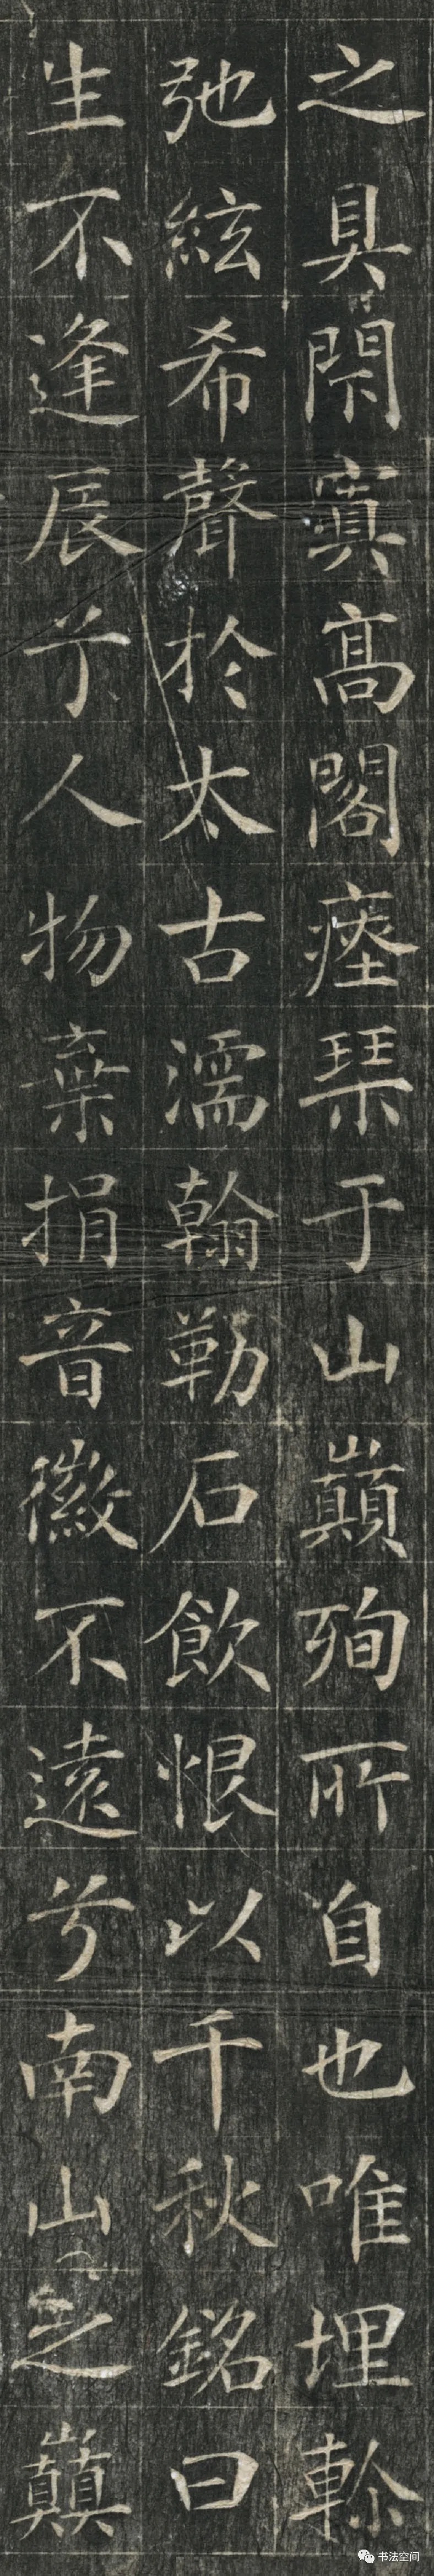 之具閑寘高閣瘞琹于山巔殉所自也唯埋軫
弛絃希聲於太古濡翰勒石飲恨以千秋銘曰
生不逢辰兮人物棄捐音徽不遠兮南山之巔
书法空间